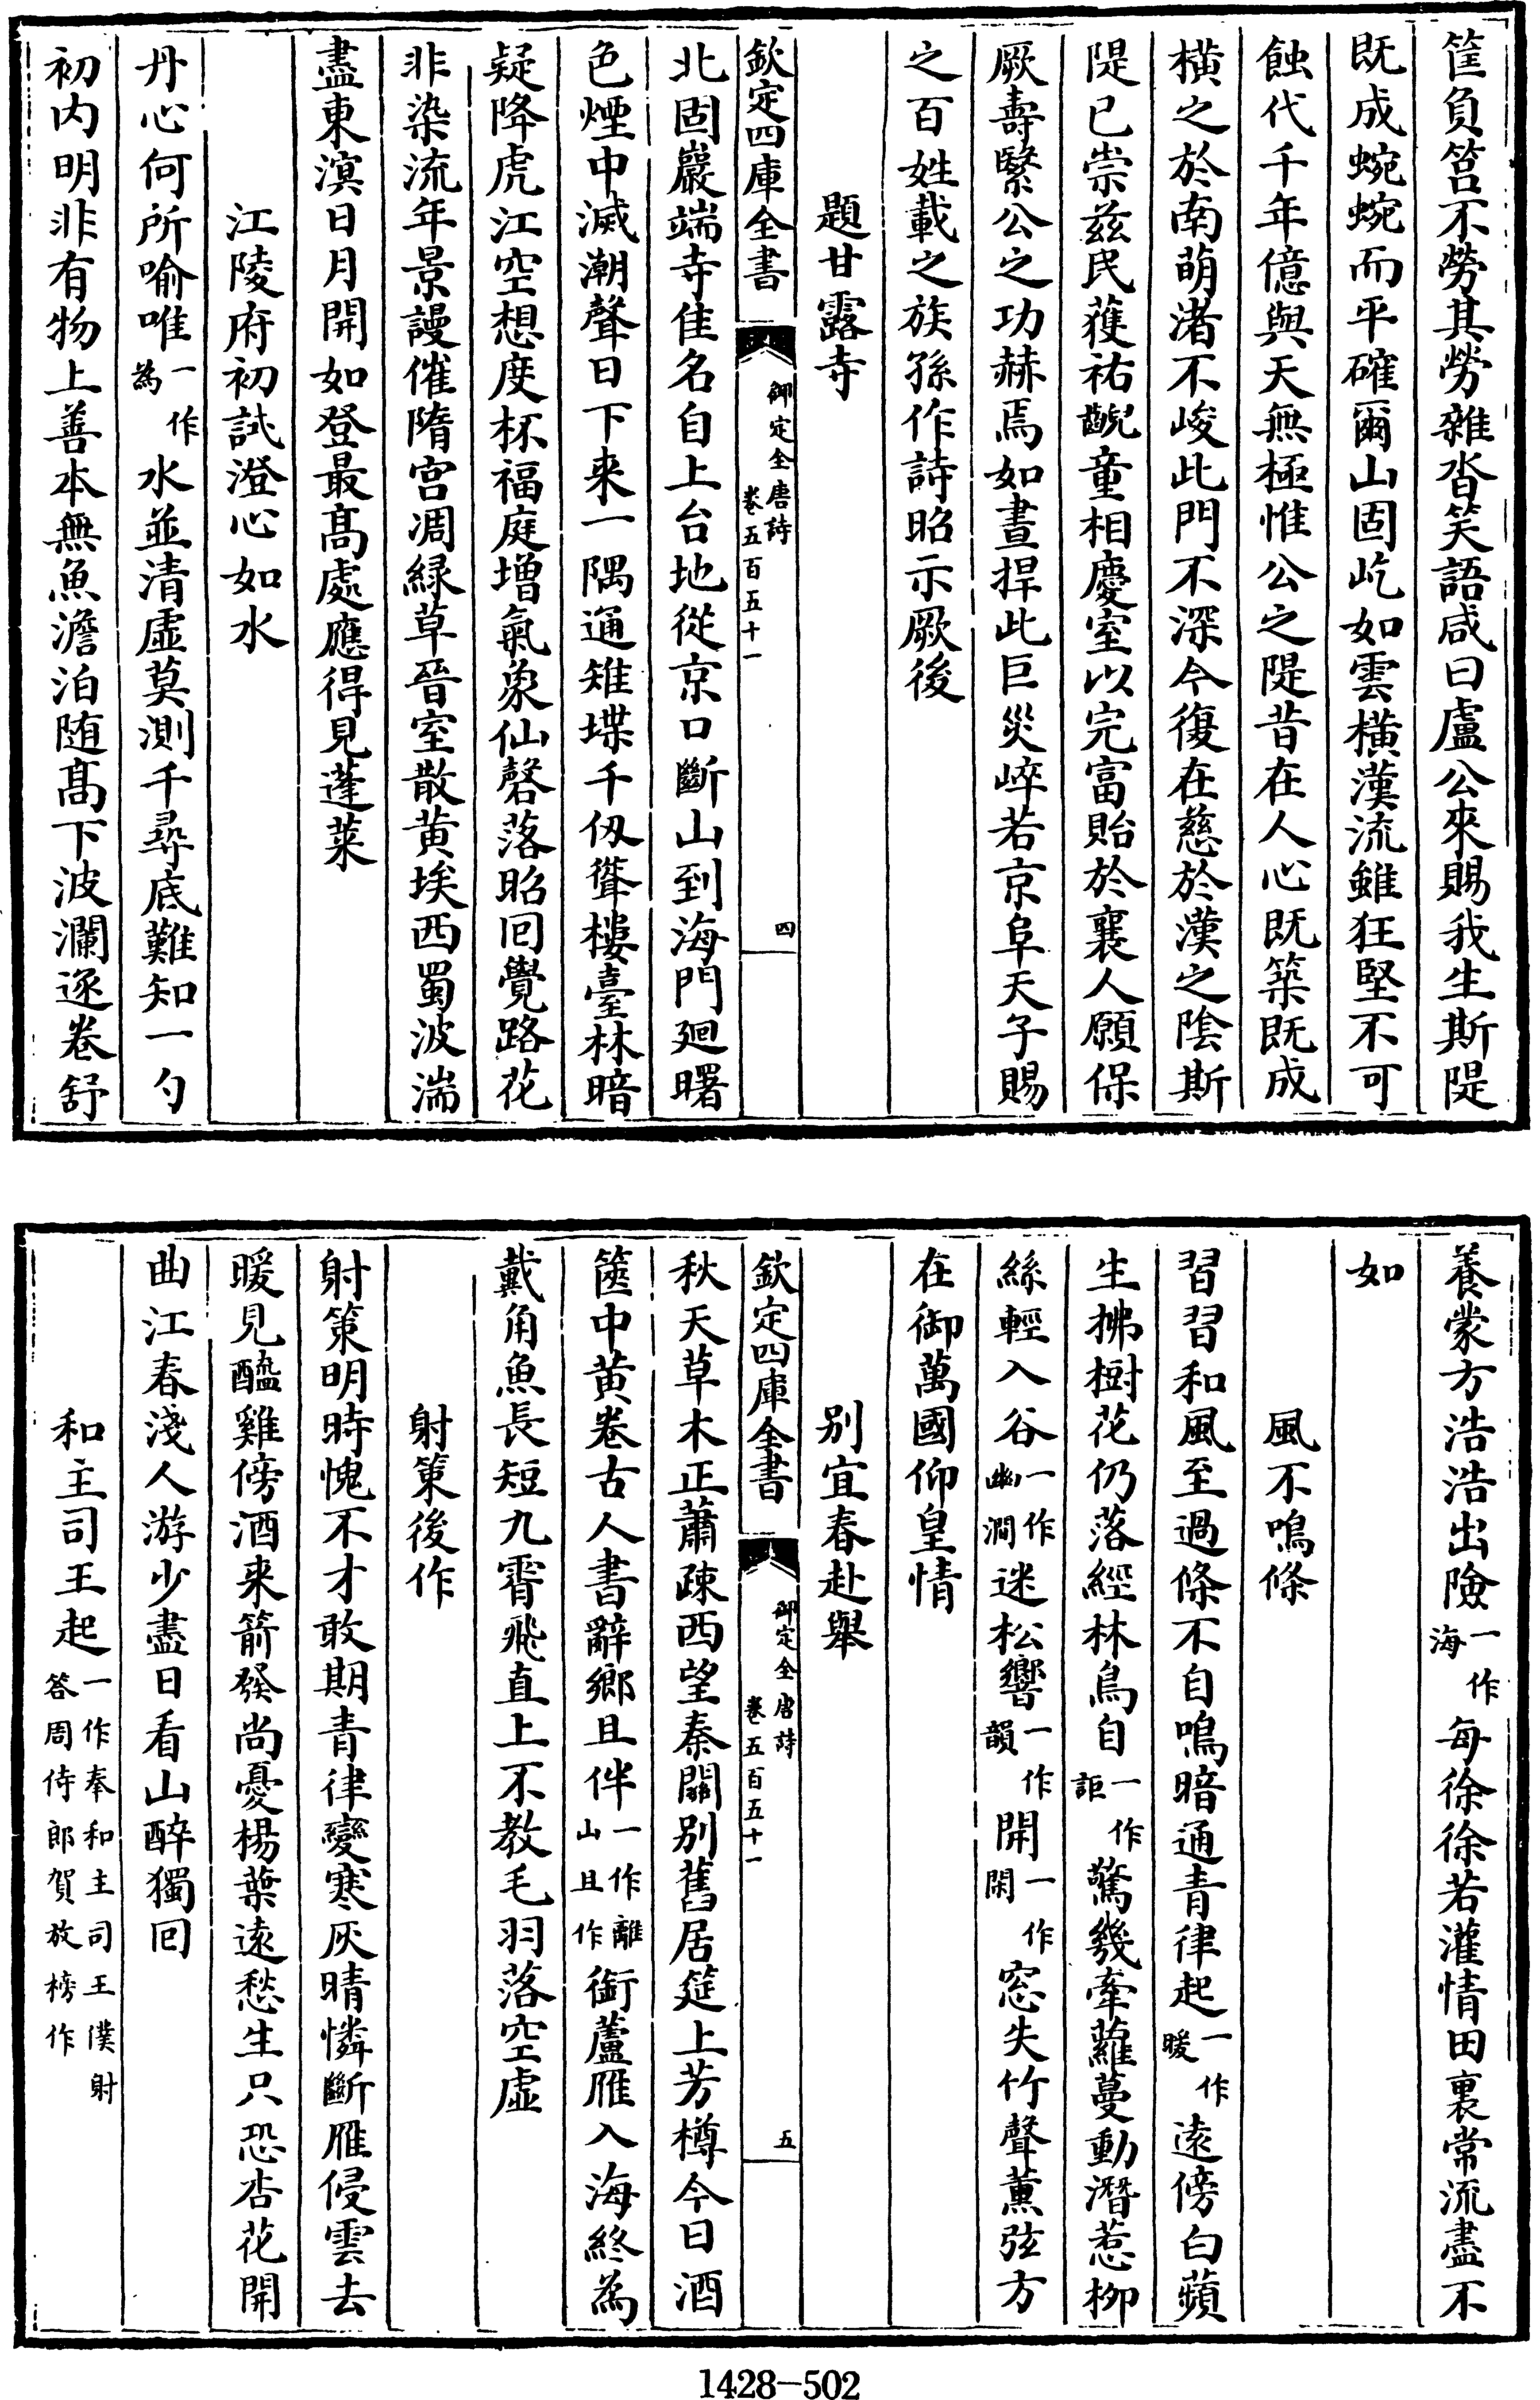 筐負筥不勞其勞雜沓笑語咸曰盧公來賜我生斯隄
既成蜿蜿而平確爾山固屹如雲橫漢流雖狂堅不可
蝕代千年億與天無極惟公之隄昔在人心既築既成
橫之於南萌渚不峻此門不深今復在慈於漢之陰斯
隄已崇兹民獲祐齯童相慶室以完富貽於襄人願保
厥壽繄公之功赫焉如晝捍此巨災崪若京阜天子賜
之百姓載之族孫作詩昭示厥後
題甘露寺
欽定四庫全書 御定全唐詩 卷五百五十一 四
北固巖端寺佳名自上台地從京口斷山到海門廻曙
色煙中滅潮聲日下来一隅通雉堞千仭聳樓臺林暗
疑降虎江空想度杯福庭增氣象仙磬落昭回覺路花
非染流年景謾催隋宫凋緑草晉室散黄埃西蜀波湍
盡東溟日月開如登最髙處應得見蓬萊
江陵府初試澄心如水
丹心何所喻唯一作為水並清虛莫測千尋底難知一勺
初内明非有物上善本無魚澹泊随髙下波瀾逐卷舒
養蒙方浩浩出險一作海每徐徐若灌情田裏常流盡不
如
風不鳴條
習習和風至過條不自鳴暗通青律起一作暖遠傍白蘋
生拂樹花仍落經林鳥自一作詎驚幾牽蘿蔓動潛惹柳
絲輕入谷一作幽澗迷松響一作韻開一作閑窓失竹聲薫弦方
在御萬國仰皇情
别宜春赴舉
欽定四庫全書 御定全唐詩 卷五百五十一 五
秋天草木正蕭疎西望秦關别舊居筵上芳樽今日酒
篋中黄卷古人書辭鄉且伴一作離山且作銜蘆雁入海終為
戴角魚長短九霄飛直上不教毛羽落空虛
射策後作
射策明時愧不才敢期青律變寒灰晴憐斷雁侵雲去
暖見醯雞傍酒来箭發尚憂楊葉遠愁生只恐杏花開
曲江春淺人游少盡日看山醉獨回
和主司王起一作奉和主司王僕射答周侍郎賀放榜作
1428—502